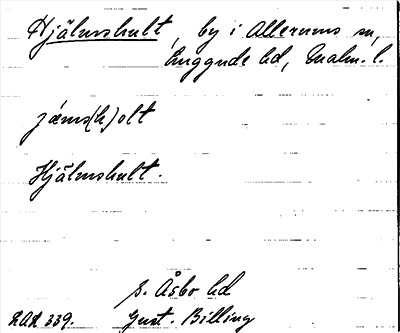 Hjälmshult, by i Allerums sn,
Luggude hd, Malm. l.
jæms(h)olt
Hjälmshult.
S. Åsbo hd
LAL 339. Gust. Billing